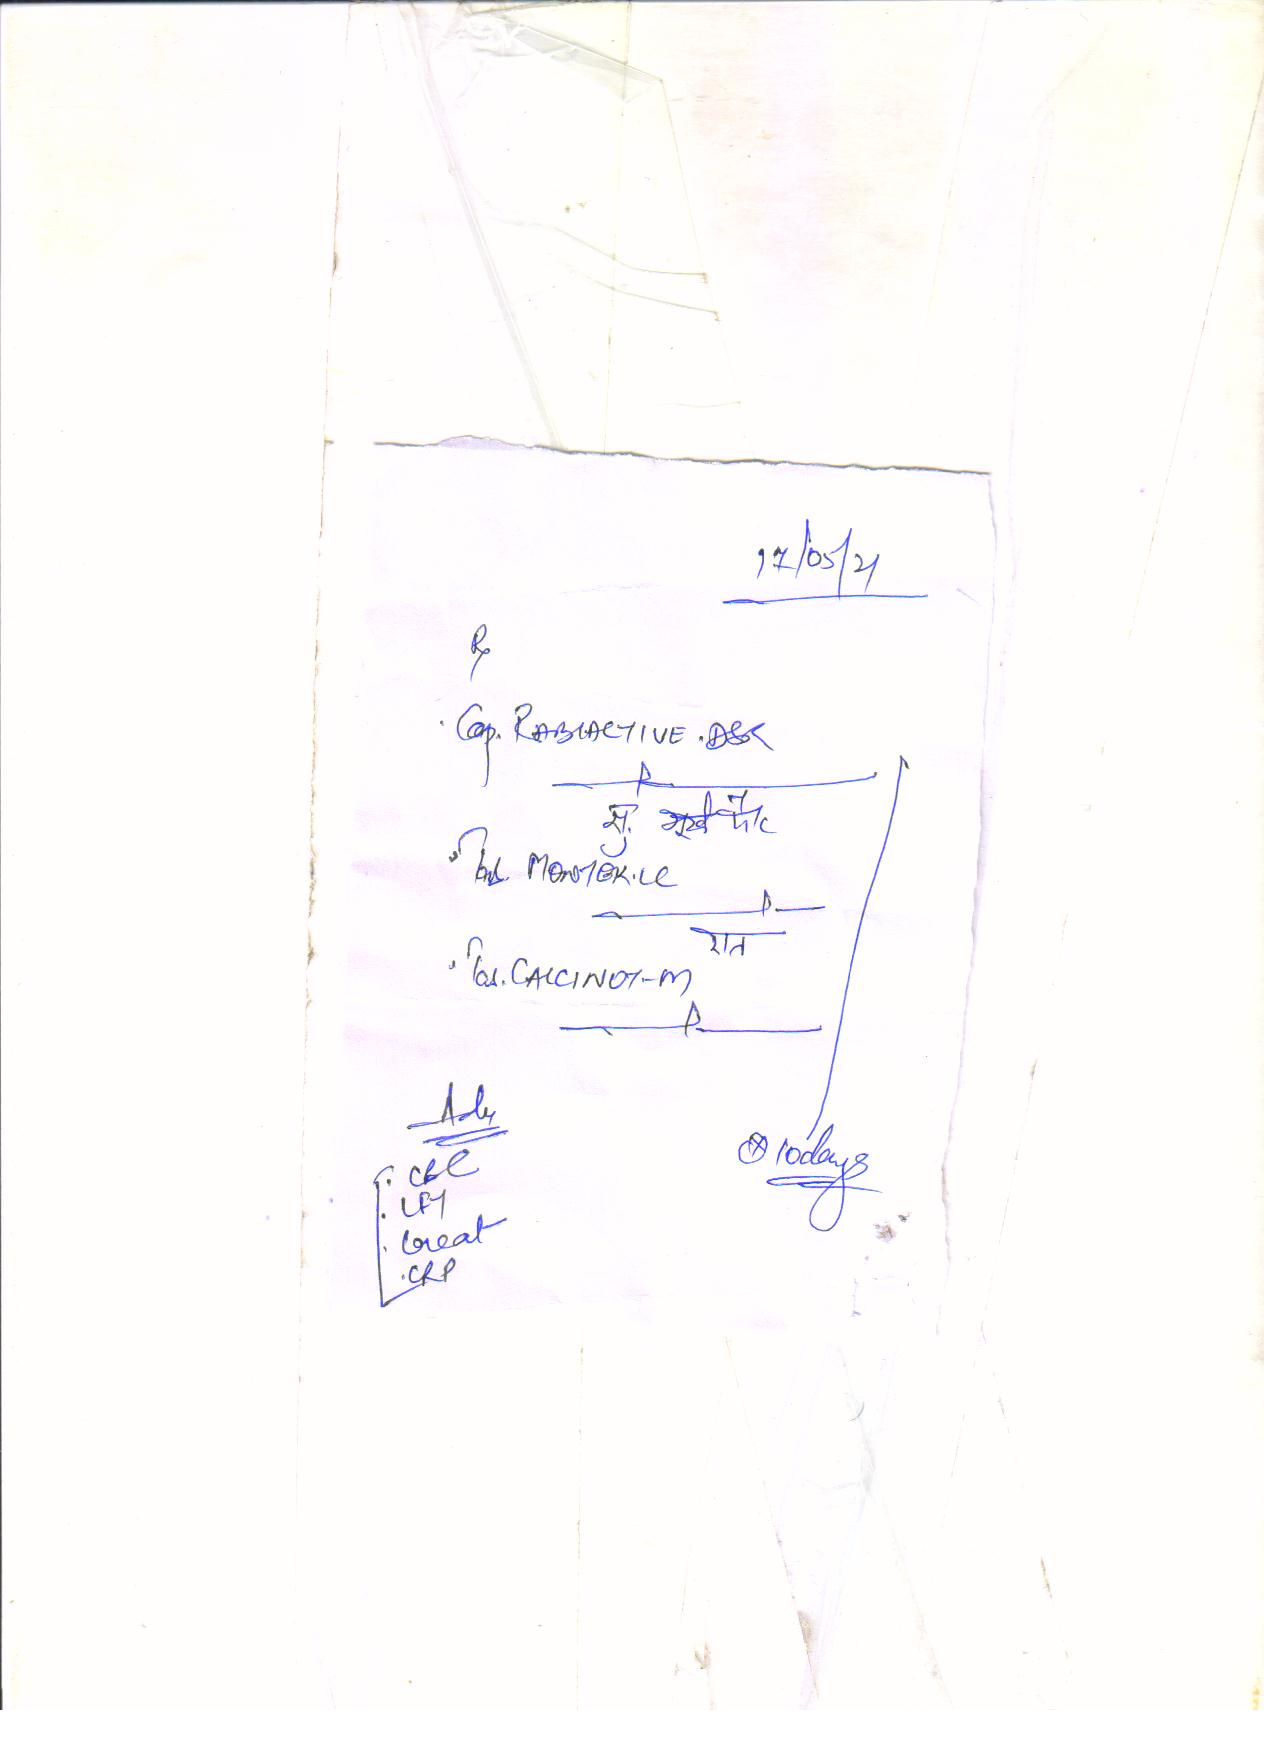 17/05/21
Rx
. Cap. RABIACTIVE .DSR
सु. भूखे पेट
" Tab. MONTEK.LC
रात
" Tab. CALCINOT-M
Adv
. CBC
. LFT
. Creat
. CRP
⊗ 10days